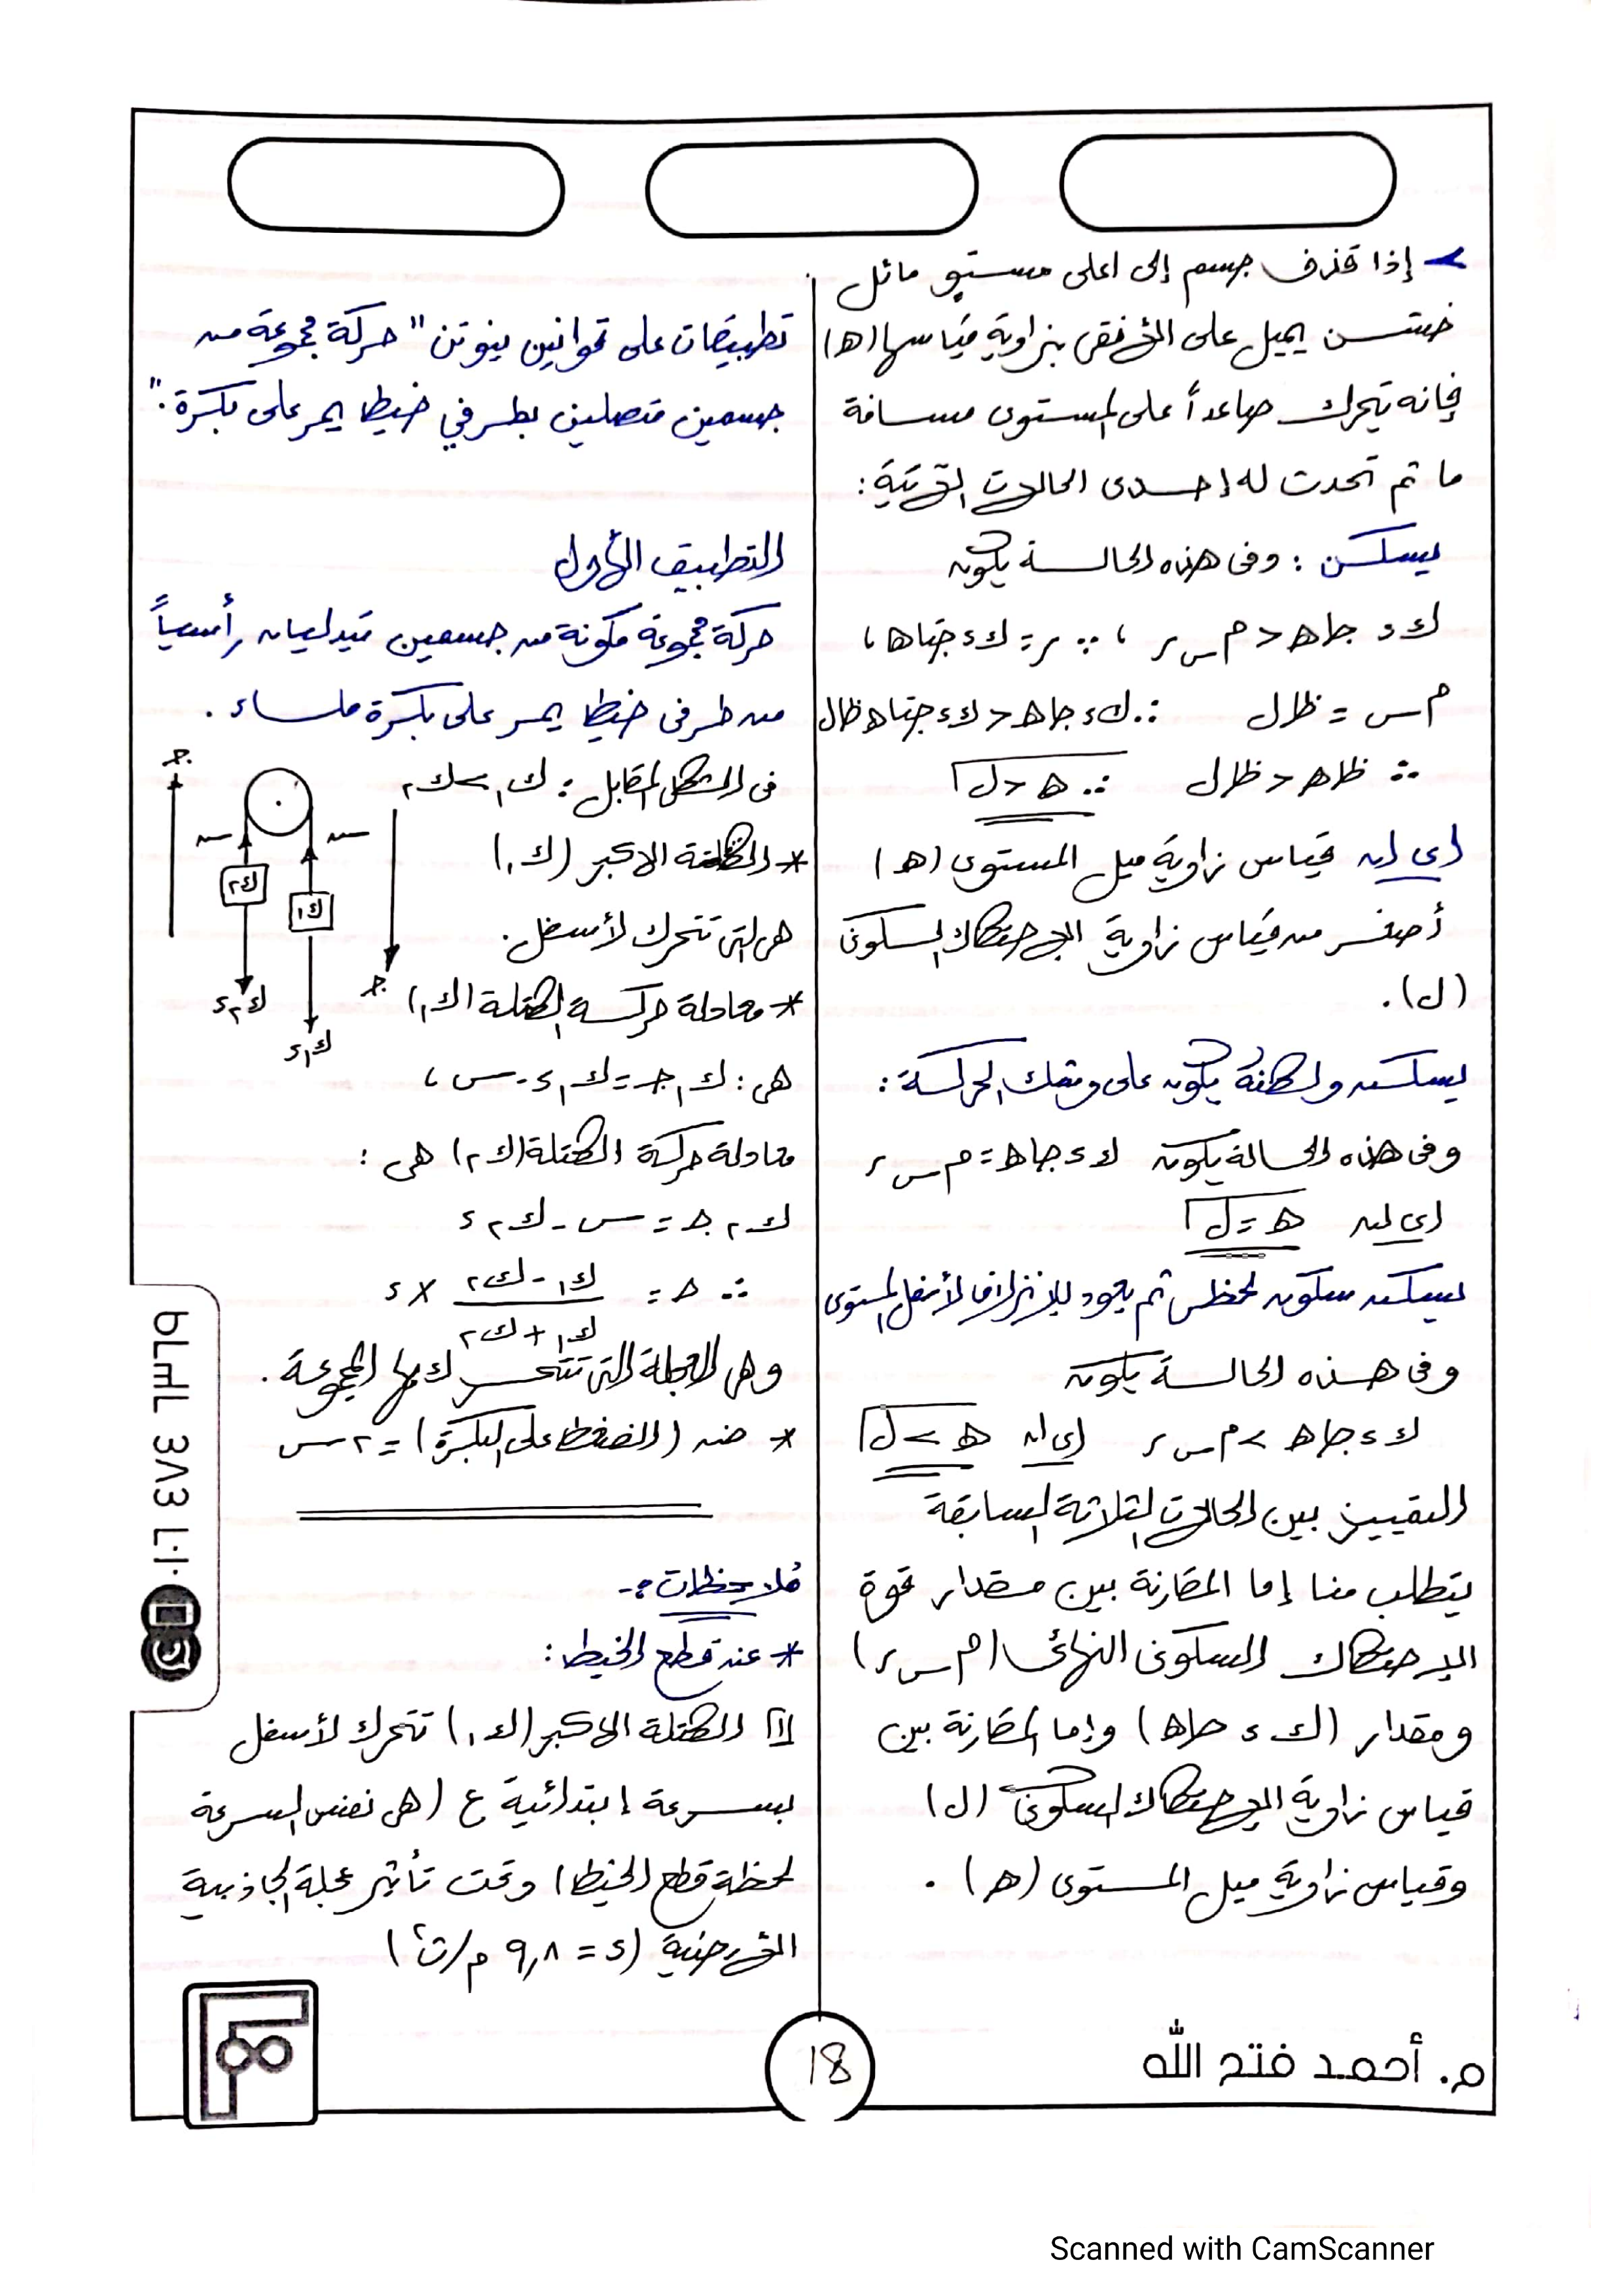 ← إذا قذف جسم إلى اعلى مستوٍ مائل
خشن يميل على الأفقى بزاوية قياسها (هـ)
فإنه يتحرك صاعداً على المستوى مسافة
ما ثم تحدث له إحدى الحالات الآتية:
يسكن : وفى هذه الحالة يكون
ك د جاهـ < م س ر ، ∵ ر = ك د جتاهـ ،
م س = ظال ∴ ك د جاهـ < ك د جتاهـ ظال
∴ ظاهـ < ظال ∴ هـ < ل
اى ان قياس زاوية ميل المستوى (هـ)
أصغر من قياس زاوية الاحتكاك السكونى
(ل).
يسكن ولكنه يكون على وشك الحركة :
وفى هذه الحالة يكون ك د جاهـ = م س ر
اى ان هـ = ل
يسكن سكون لحظى ثم يعود للإنزلاق لأسفل المستوى
وفى هذه الحالة يكون
ك د جاهـ > م س ر اى ان هـ > ل
التمييز بين الحالات الثلاثة السابقة
يتطلب منا إما المقارنة بين مقدار قوة
الإحتكاك السكونى النهائى (م س ر)
ومقدار (ك د جاهـ) وإما المقارنة بين
قياس زاوية الاحتكاك السكونى (ل)
وقياس زاوية ميل المستوى (هـ) .
تطبيقات على قوانين نيوتن " حركة مجموعة من
جسمين متصلين بطرفي خيط يمر على بكرة ."
التطبيق الأول
حركة مجموعة مكونة من جسمين يتدليان رأسياً
من طرفى خيط يمر على بكرة ملساء .
فى الشكل المقابل : ك١ > ك٢
* الكتلة الاكبر (ك١)
هى التى تتحرك لأسفل .
* معادلة حركة الكتلة (ك١)
هى : ك١ جـ = ك١ د - س ،
معادلة حركة الكتلة (ك٢) هى :
ك٢ جـ = س - ك٢ د
∴ جـ = (ك١ - ك٢) / (ك١ + ك٢) × د
وهى العجلة التى تتحرك بها المجموعة .
* ضـ (الضغط على البكرة) = ٢ س
جـ
س س
ك٢
ك١
جـ
ك٢ د
ك١ د
ملاحظات :-
* عند قطع الخيط :
١ الكتلة الاكبر (ك١) تتحرك لأسفل
بسرعة ابتدائية ع (هى نفس السرعة
لحظة قطع الخيط) وتحت تأثير عجلة الجاذبية
الأرضية (د = ٩,٨ م/ث٢)
م. أحمد فتح الله
18
Scanned with CamScanner